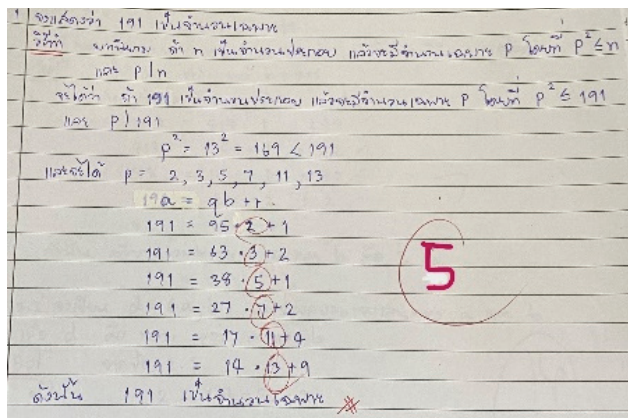 จงแสดงว่า 191 เป็นจำนวนเฉพาะ
วิธีทำ บทนิยาม ถ้า n เป็นจำนวนประกอบ แล้วจะมีจำนวนเฉพาะ P โดยที่ P² ≤ n
และ P | n
จะได้ว่า ถ้า 191 เป็นจำนวนประกอบ แล้วจะมีจำนวนเฉพาะ P โดยที่ P² ≤ 191
และ P | 191
P² = 13² = 169 < 191
และจะได้ P = 2, 3, 5, 7, 11, 13
19a = qb + r
191 = 95 · 2 + 1
191 = 63 · 3 + 2
191 = 38 · 5 + 1
191 = 27 · 7 + 2
191 = 17 · 11 + 4
191 = 14 · 13 + 9
5
ดังนั้น 191 เป็นจำนวนเฉพาะ